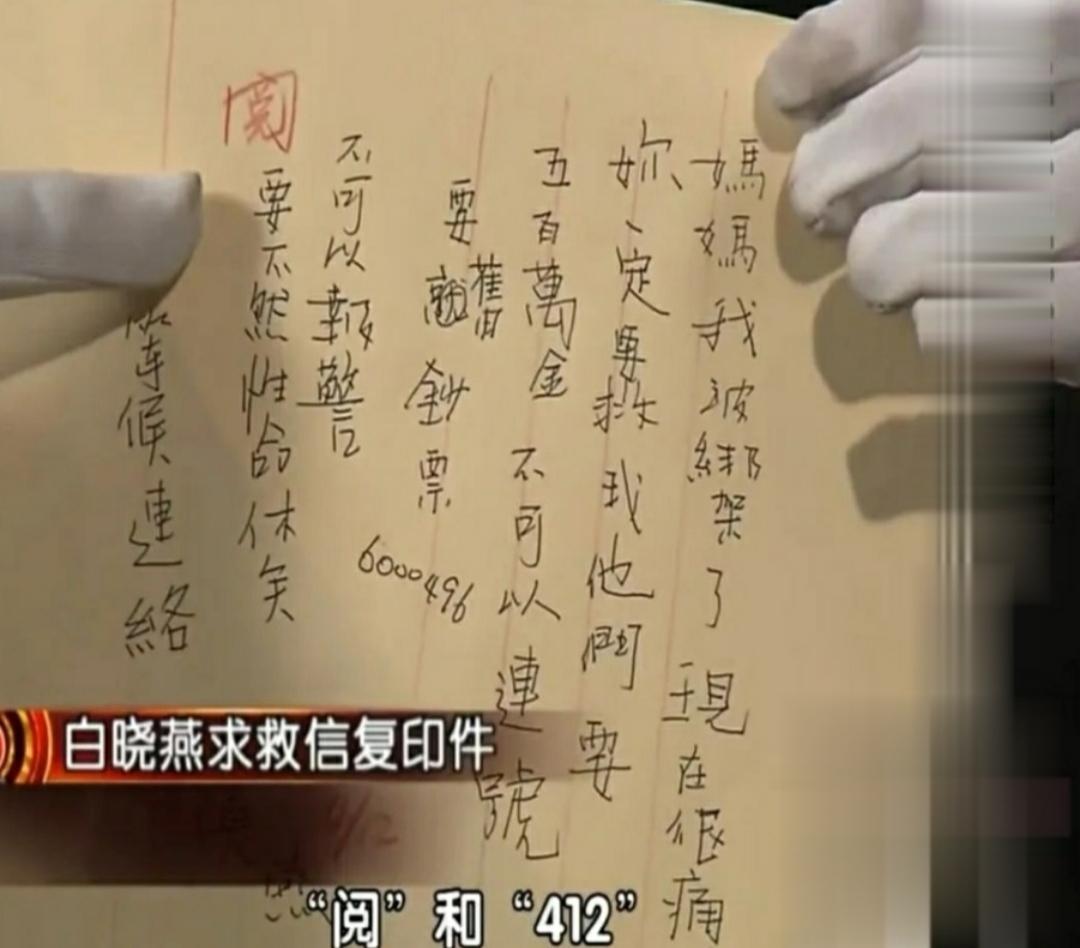 媽媽我被綁架了 現在很痛
妳一定要救我他們要
五百萬金 不可以連號
要舊鈔票
6000496
不可以報警
閱
要不然性命休矣
等候連絡
白晓燕求救信复印件
“阅”和“412”